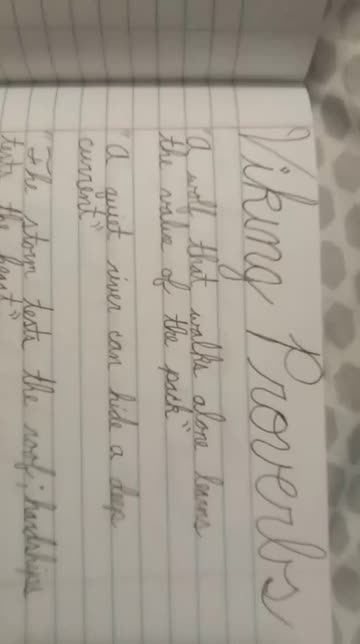 Viking Proverbs
"A wolf that walks alone learns
the value of the pack"
"A quiet river can hide a deep
current"
"The storm tests the roof; hardships
tests the heart"